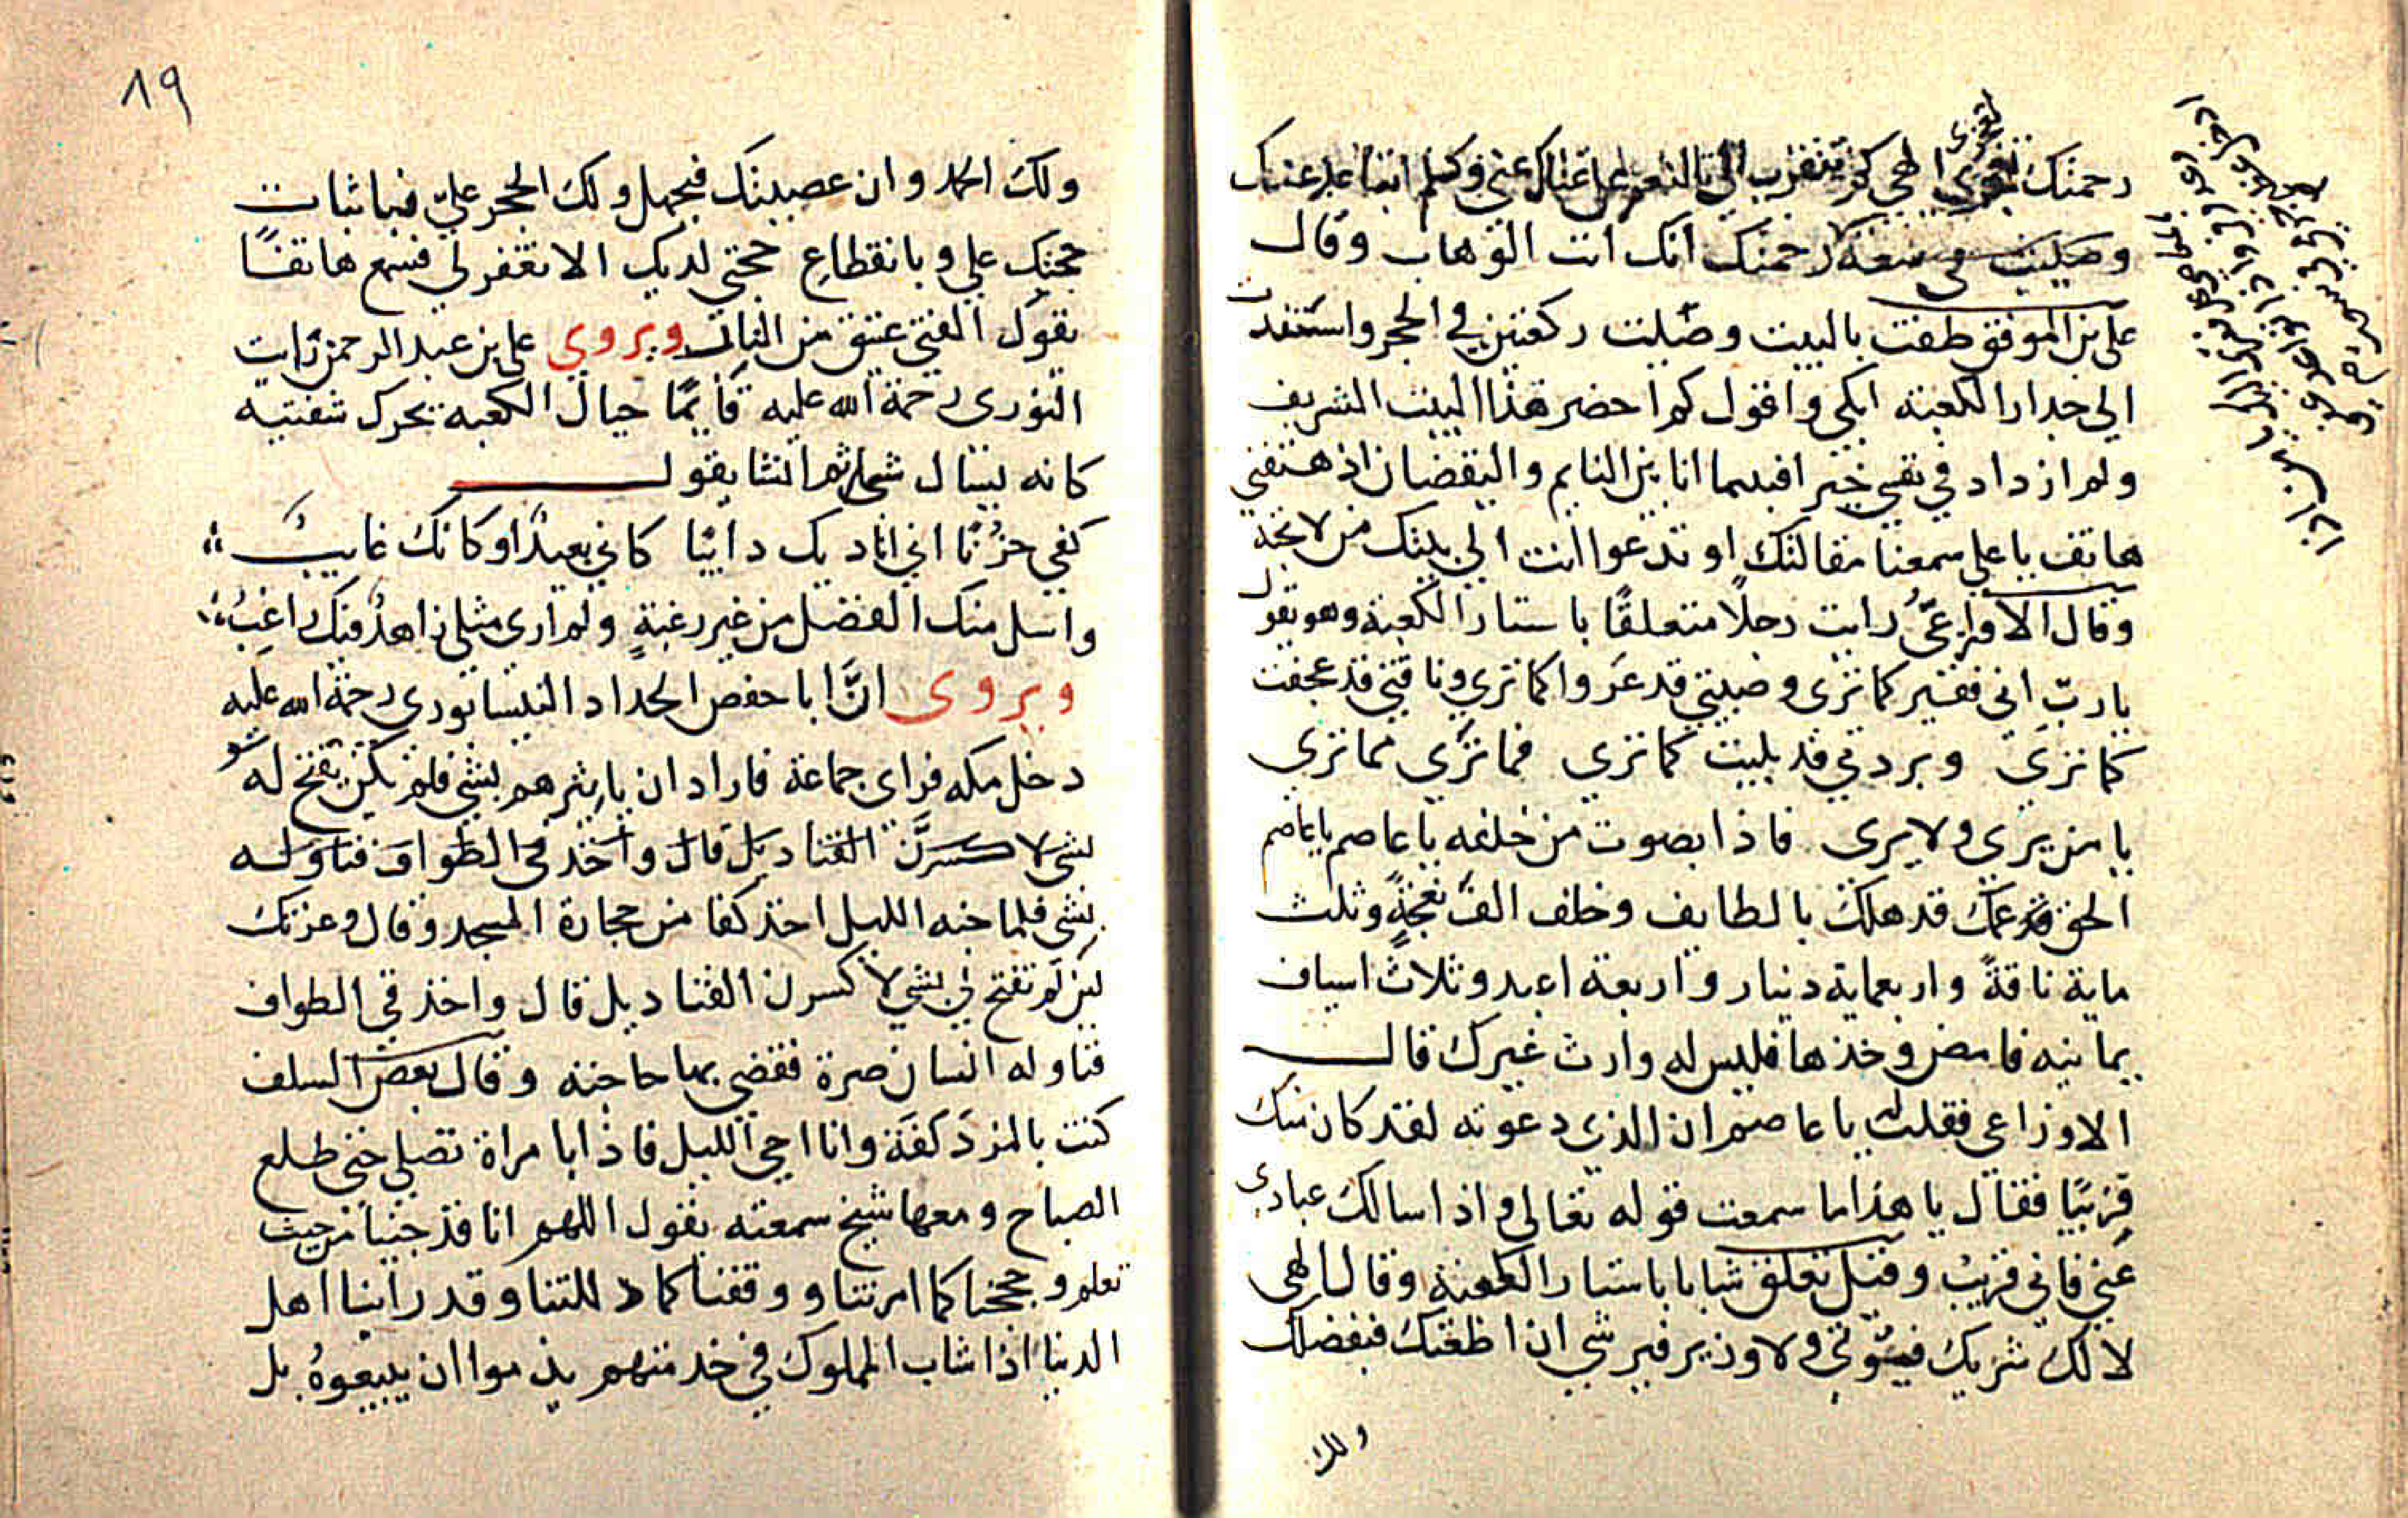 رحمتك الهي كم تتقرب الي بالنعم على غناك عني وكم
وصليت في سعة رحمتك انك انت الوهاب وقال
علي بن الموفق طفت بالبيت وصليت ركعتين في الحجر واستندت
الى جدار الكعبة ابكي واقول كم احضر هذا البيت الشريف
ولم ازداد في نفسي خيرا فبينما انا بين النايم واليقضان اذ هتفني
هاتف يا علي سمعنا مقالتك او تدعوا انت الى بيتك من لا تحبه
وقال الاوزاعيُّ رايت رجلاً متعلقًا باستار الكعبة وهو يقول
يا ربّ اني فقير كما ترى وصبيتي قد عروا كما تري وناقتي قد عجفت
كما ترى وبردتي قد بليت كما تري فما تري مما تري
يا من يري ولا يري فاذا بصوت من خلفه يا عاصم يا عاصم
الحق عمك قد هلك بالطايف وخلف الف نعجةٍ وثلث
ماية ناقةً واربعماية دينار واربعة اعبد وثلاث اسياف
يمانيه فامض وخذها فليس له وارث غيرك قال
الاوزاعي فقلت له يا عاصم ان الذي دعوته لقد كان منك
قريبًا فقال يا هذا ما سمعت قوله تعالى واذا سالك عبادي
عني فاني قريب وقيل تعلق شابا باستار الكعبة وقال الهي
لا لك شريك فيؤتى ولا وزير فيرشي ان اطعتك فبفضلك
ولك
٨٩
ولك الحمد وان عصيتك فبجهل ولك الحجر علي فباثبات
حجتك علي وبانقطاع حجتي لديك الا تغفر لي فسمع هاتفًا
يقول الفتى عتيق من النار ويروي علي بن عبد الرحمن رايت
النوري رحمة الله عليه قايمًا حيال الكعبه يحرك شفتيه
كانه يسال شيا ثم انشا يقول
كفى حزنًا اني اناديك دائبًا كاني بعيدٌ او كانك غايبُ
واسل منك الفضل من غير رغبةٍ ولم ارى مثلي زاهدٌ فيك راغبُ
ويروى انَّ ابا حفص الحداد النيسابوري رحمة الله عليه
دخل مكه فراى جماعة فاراد ان يابثرهم بشي فلم يكن يفتح له
بشي لاكسرنَّ القناديل قال واخذ في الطواف فناوله
بشي فلما جنه الليل اخذ كفا من حجارة المسجد وقال وعزتك
لين لم تفتح لي بشي لاكسرن القناديل قال واخذ في الطواف
فناوله انسان صرة فقضى بها حاجته وقال بعض السلف
كنت بالمزدلفة وانا احي الليل فاذا بامراة تصلي حتى طلع
الصباح ومعها شيخ سمعته يقول اللهم انا قد جينا من حيث
تعلم وحججنا كما امرتنا ووقفنا كما دللتنا وقد راينا اهل
الدنيا اذا شاب المملوك في خدمتهم يذموا ان يبيعوهُ بل